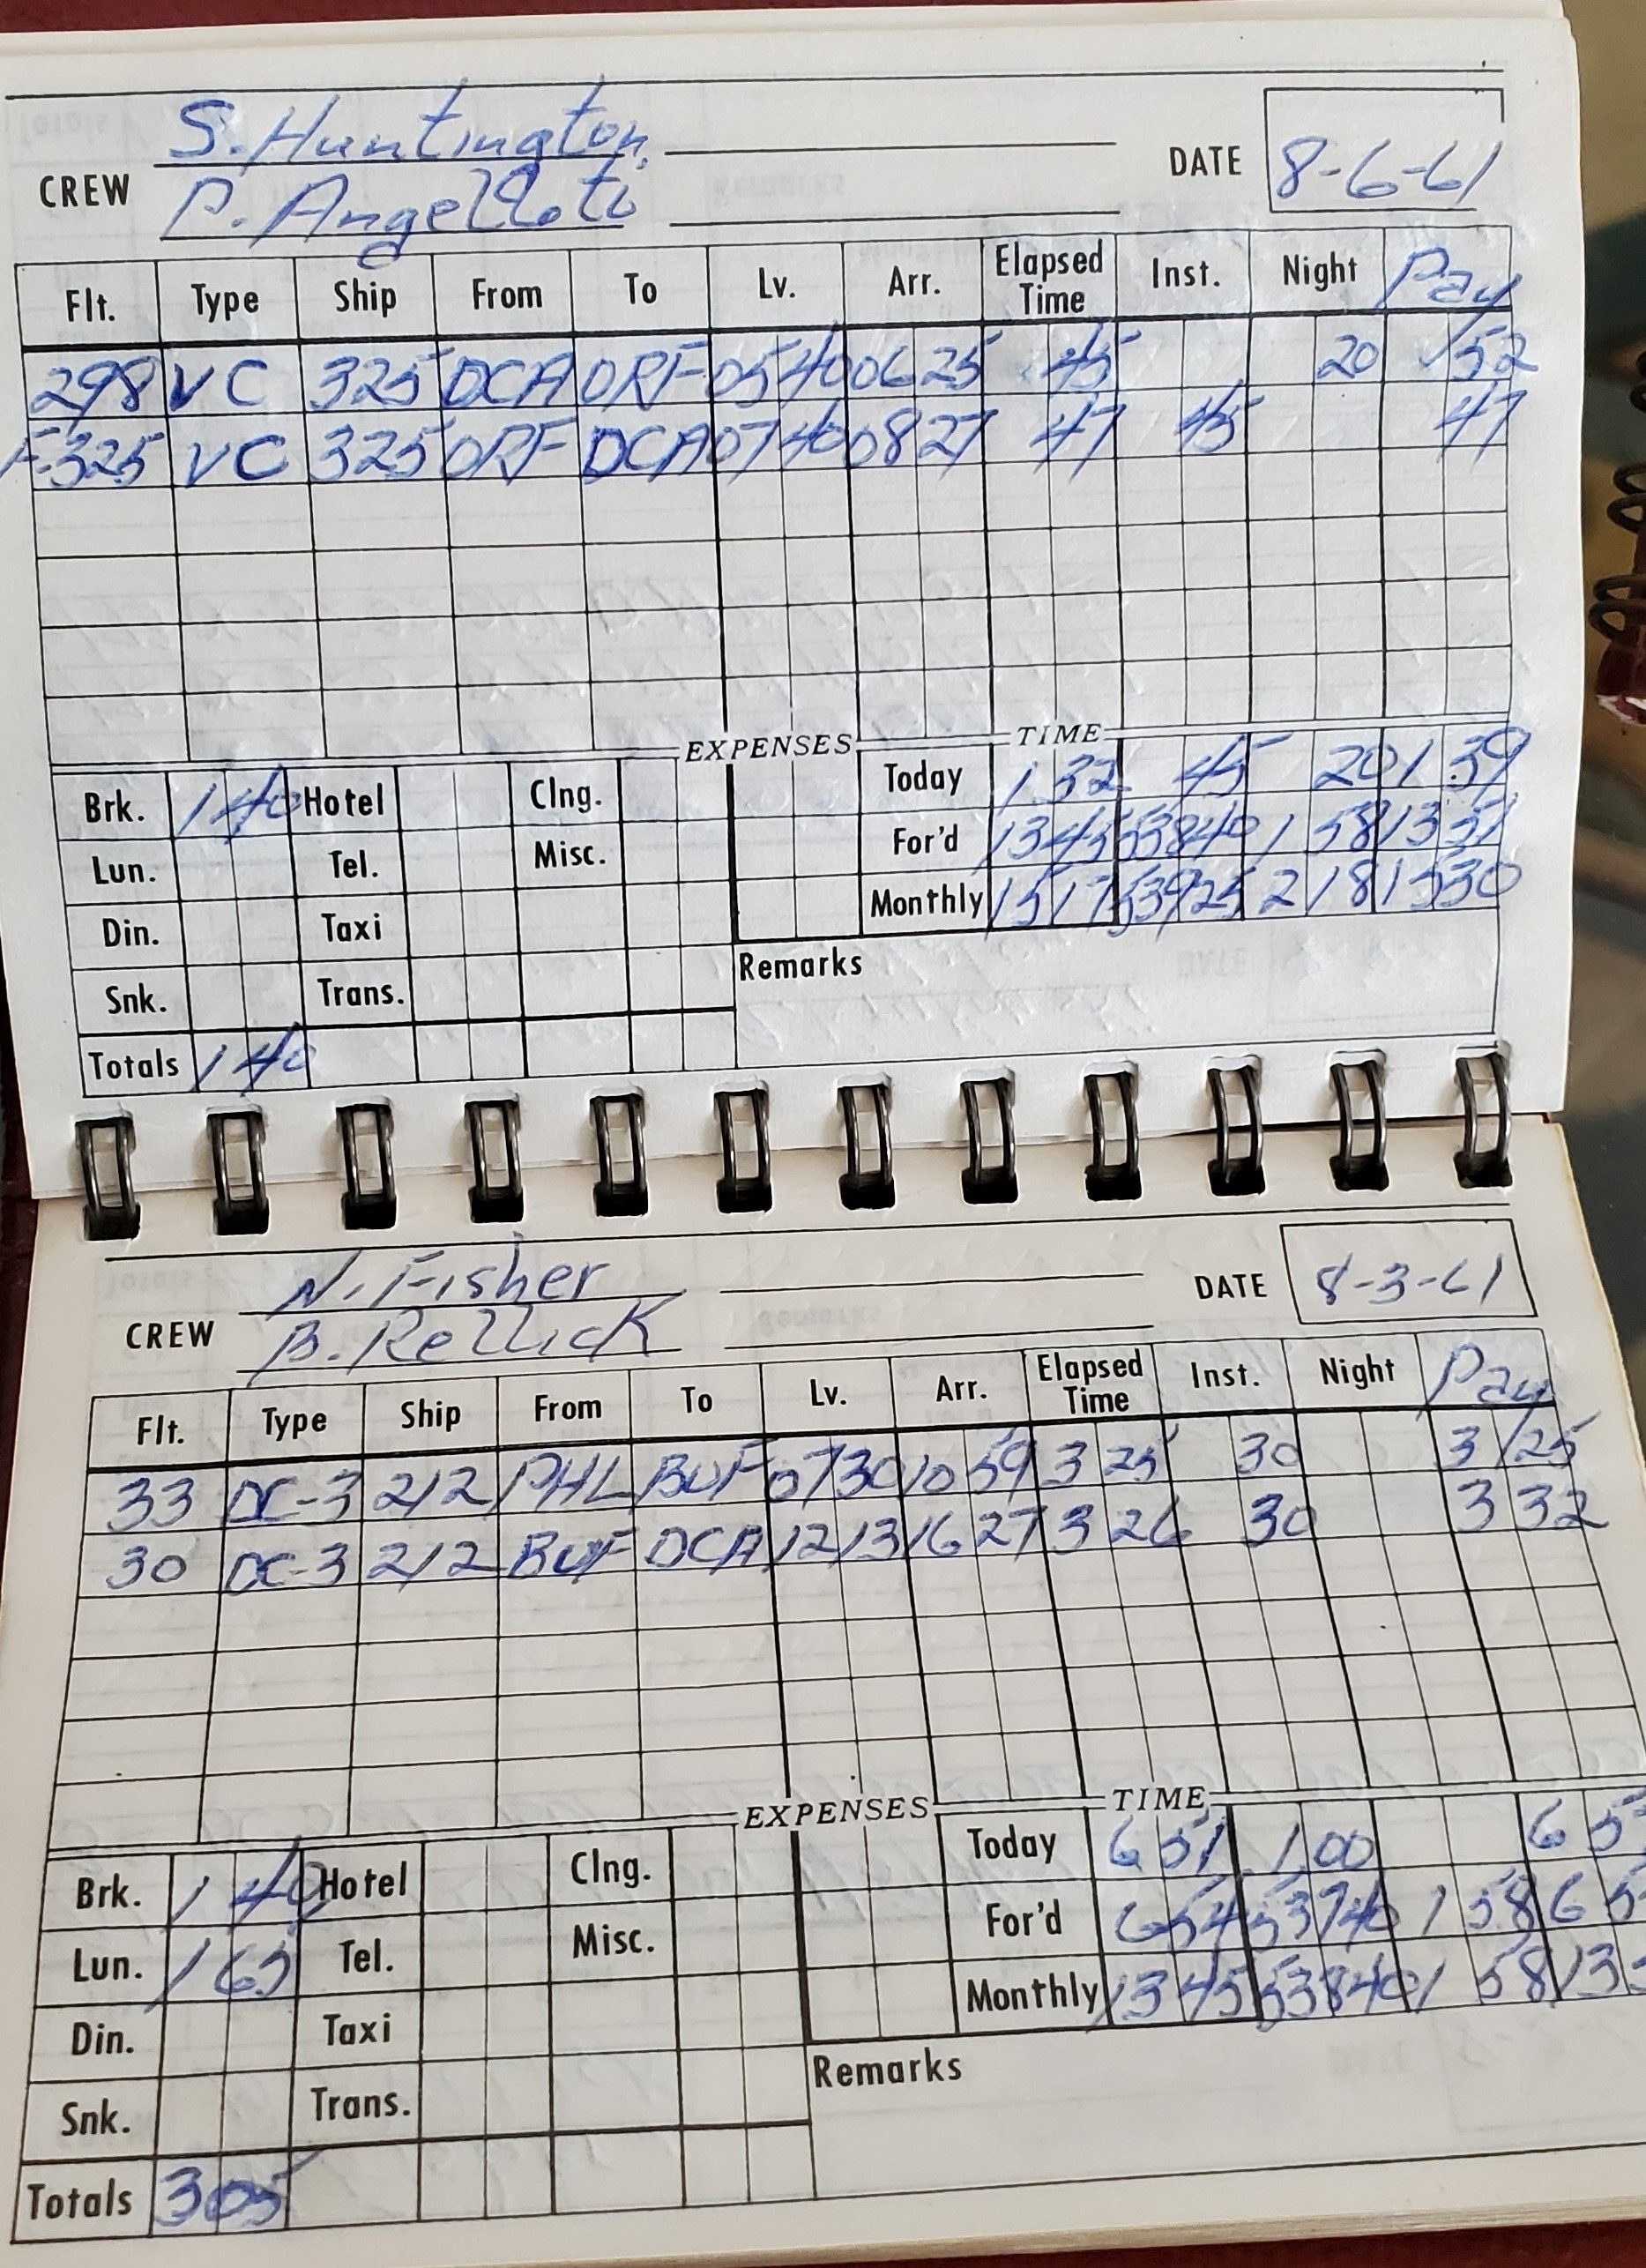 S. Huntington
CREW P. Angelloti DATE 8-6-61
Flt. Type Ship From To Lv. Arr. Elapsed Time Inst. Night Pay
298 VC 325 DCA ORF 05 40 06 25 45 20 /52
F-325 VC 325 ORF DCA 07 40 08 27 47 45 47
EXPENSES TIME
Brk. 1 40 Hotel Clng. Today 1 32 45 20 1 39
Lun. Tel. Misc. For'd 13 45 538 40 1 58 13 51
Din. Taxi Monthly 15 17 539 25 2 18 15 30
Snk. Trans. Remarks
Totals 1 40
N. Fisher
CREW B. Rellick DATE 8-3-61
Flt. Type Ship From To Lv. Arr. Elapsed Time Inst. Night Pay
33 DC-3 212 PHL BUF 07 30 10 59 3 25 30 3 /25
30 DC-3 212 BUF DCA 12 13 16 27 3 26 30 3 32
EXPENSES TIME
Brk. 1 40 Hotel Clng. Today 6 51 1 00 6
Lun. 1 65 Tel. Misc. For'd 6 54 537 40 1 58 6
Din. Taxi Monthly 13 45 538 40 1 58 13
Snk. Trans. Remarks
Totals 3 05